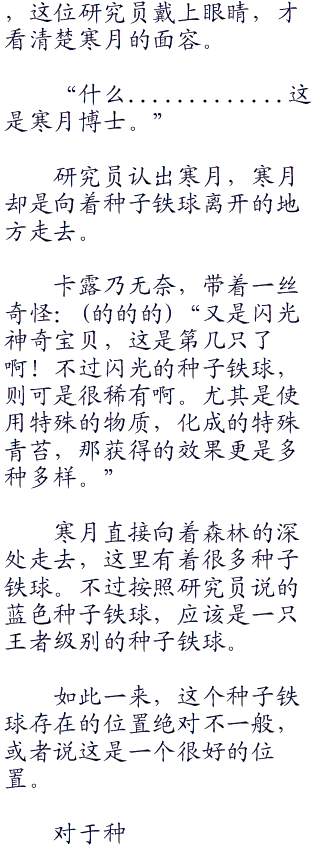 ，这位研究员戴上眼睛，才
看清楚寒月的面容。
“什么.............这
是寒月博士。”
研究员认出寒月，寒月
却是向着种子铁球离开的地
方走去。
卡露乃无奈，带着一丝
奇怪：(的的的)“又是闪光
神奇宝贝，这是第几只了
啊！不过闪光的种子铁球，
则可是很稀有啊。尤其是使
用特殊的物质，化成的特殊
青苔，那获得的效果更是多
种多样。”
寒月直接向着森林的深
处走去，这里有着很多种子
铁球。不过按照研究员说的
蓝色种子铁球，应该是一只
王者级别的种子铁球。
如此一来，这个种子铁
球存在的位置绝对不一般，
或者说这是一个很好的位
置。
对于种